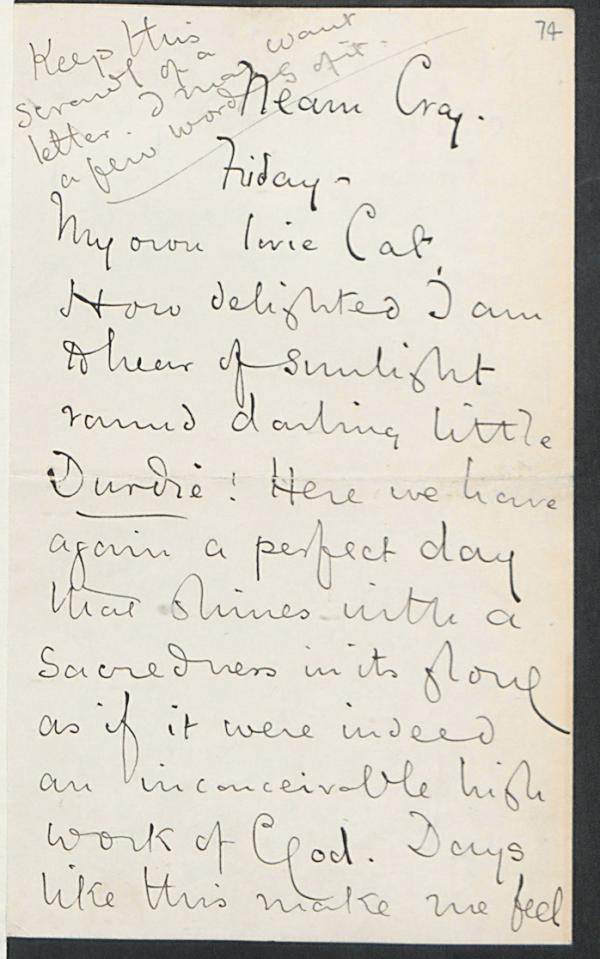 74
Keep this
scrawl of a
letter. I may want
a few words of it.
Neam Cray.
Friday -
My own Cat,
How delighted I am
to hear of sunlight
round darling little
Durdie! Here we have
again a perfect day
that shines with a
sacredness in its glory
as if it were indeed
an inconceivable high
work of God. Days
like this make me feel